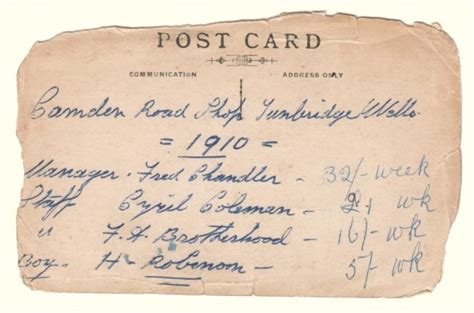 POST CARD
COMMUNICATION ADDRESS ONLY
Camden Road Shop Tunbridge Wells
= 1910 =
Manager. Fred Chandler - 32/- week
Staff Cyril Coleman - wk
" F. A Brotherhood - 16/- wk
Boy. H- Robenson - 5/- wk